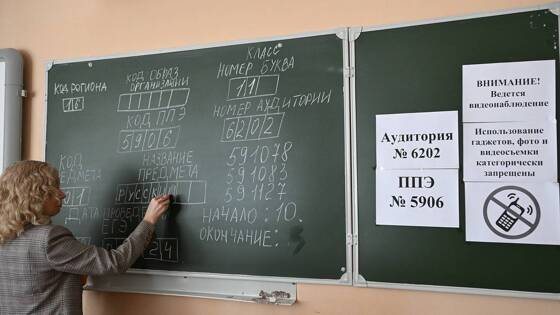 КОД РЕГИОНА
16
КОД ОБРАЗ.
ОРГАНИЗАЦИИ
КЛАСС
НОМЕР БУКВА
11
КОД ППЭ
5906
НОМЕР АУДИТОРИИ
6202
КОД
НАЗВАНИЕ
ПРЕДМЕТА
РУССКИ
591078
591083
591127
ДАТА
ЕГЭ
24
НАЧАЛО: 10.
ОКОНЧАНИЕ:
Аудитория
№ 6202
ППЭ
№ 5906
ВНИМАНИЕ!
Ведется
видеонаблюдение
Использование
гаджетов, фото и
видеосъемки
категорически
запрещены